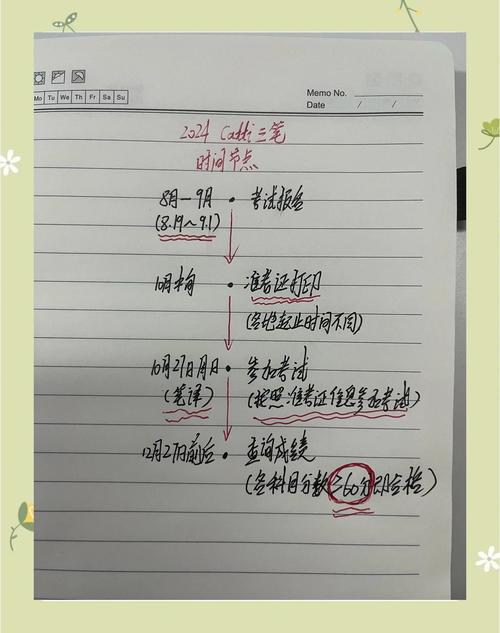 Mo Tu We Th Fr Sa Su
Memo No.
Date / /
2024 Catti三笔
时间节点
8月-9月 · 考试报名
(8.19~9.1)
10月中旬 · 准考证打印
(各地起止时间不同)
10月27日周日 · 参加考试
(笔译) (按照准考证信息参加考试)
12月27日前后 · 查询成绩
(各科目分数≥60分即合格)